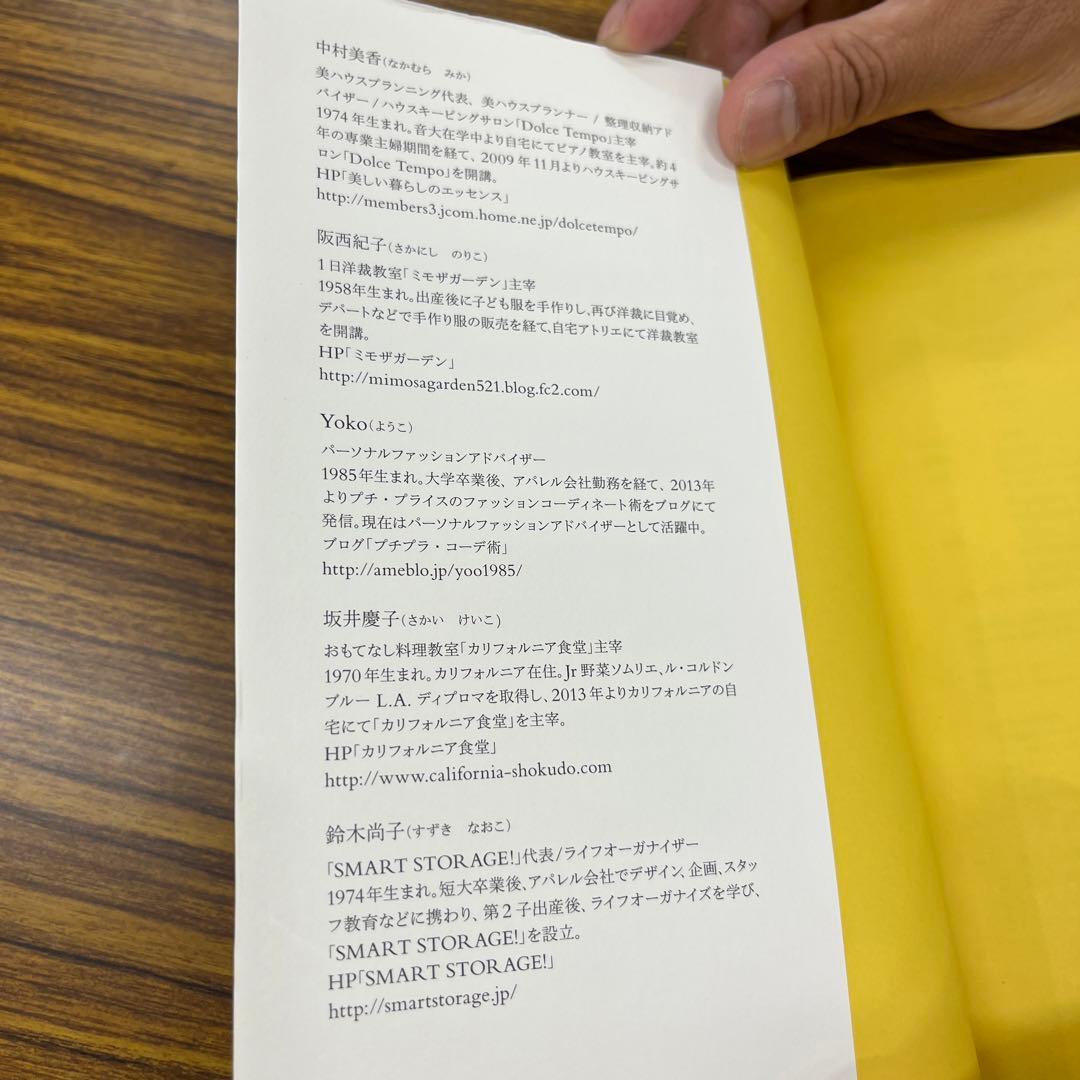 中村美香(なかむら　みか)
美ハウスプランニング代表、美ハウスプランナー / 整理収納アド
バイザー / ハウスキーピングサロン「Dolce Tempo」主宰
1974年生まれ。音大在学中より自宅にてピアノ教室を主宰。約4
年の専業主婦期間を経て、2009年11月よりハウスキーピングサ
ロン「Dolce Tempo」を開講。
HP「美しい暮らしのエッセンス」
http://members3.jcom.home.ne.jp/dolcetempo/
阪西紀子(さかにし　のりこ)
1日洋裁教室「ミモザガーデン」主宰
1958年生まれ。出産後に子ども服を手作りし、再び洋裁に目覚め、
デパートなどで手作り服の販売を経て、自宅アトリエにて洋裁教室
を開講。
HP「ミモザガーデン」
http://mimosagarden521.blog.fc2.com/
Yoko(ようこ)
パーソナルファッションアドバイザー
1985年生まれ。大学卒業後、アパレル会社勤務を経て、2013年
よりプチ・プライスのファッションコーディネート術をブログにて
発信。現在はパーソナルファッションアドバイザーとして活躍中。
ブログ「プチプラ・コーデ術」
http://ameblo.jp/yoo1985/
坂井慶子(さかい　けいこ)
おもてなし料理教室「カリフォルニア食堂」主宰
1970年生まれ。カリフォルニア在住。Jr野菜ソムリエ、ル・コルドン
ブルー L.A. ディプロマを取得し、2013年よりカリフォルニアの自
宅にて「カリフォルニア食堂」を主宰。
HP「カリフォルニア食堂」
http://www.california-shokudo.com
鈴木尚子(すずき　なおこ)
「SMART STORAGE!」代表/ライフオーガナイザー
1974年生まれ。短大卒業後、アパレル会社でデザイン、企画、スタッ
フ教育などに携わり、第2子出産後、ライフオーガナイズを学び、
「SMART STORAGE!」を設立。
HP「SMART STORAGE!」
http://smartstorage.jp/